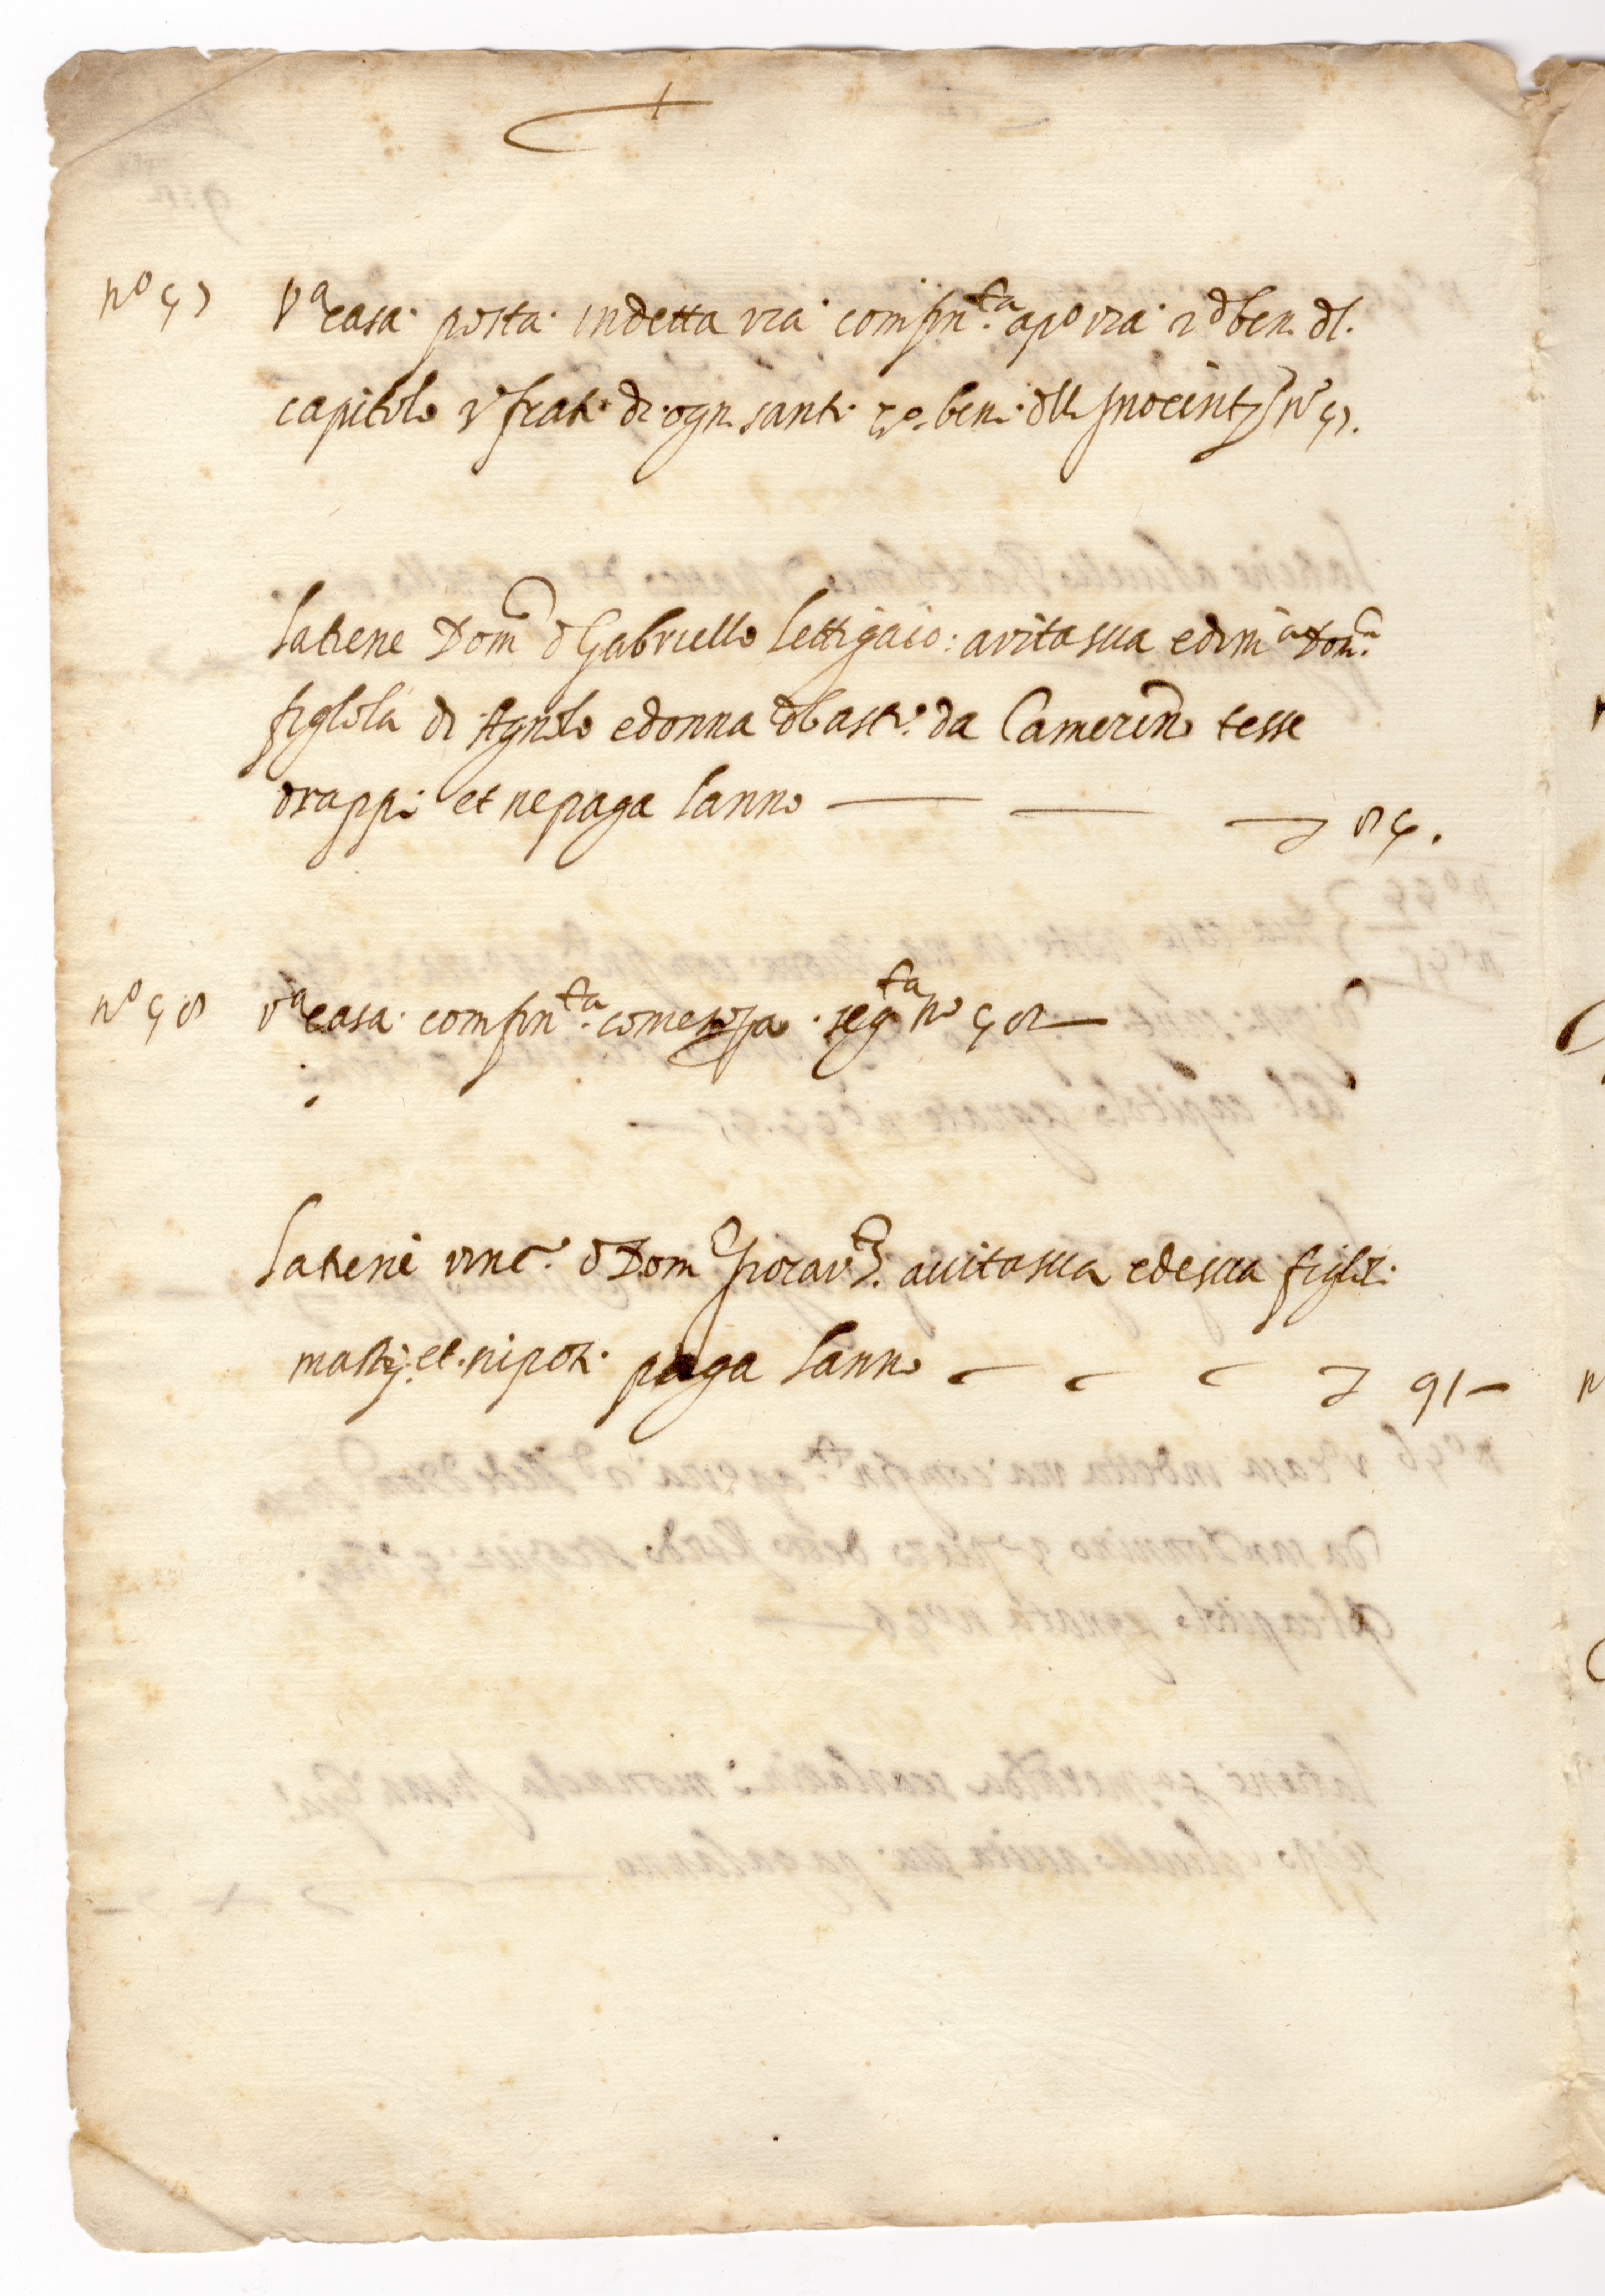 nº 57 Vª casa posta indetta via confin.ta apº via 2º ben. dl.
capitolo frati di ogni santi ben. dll Inocenti nº 57.
latiene Domº d Gabriello lettigaio: avita sua e di mª Domª
figlola di Agnolo e donna d bastº da Camerino tesse
drappi et ne paga lanno
nº 58 vª casa confin.ta come sopra segta nº 58
latiene vincº d Domº avita sua e de sua figlioli
mastij et nipoti paga lanno 91